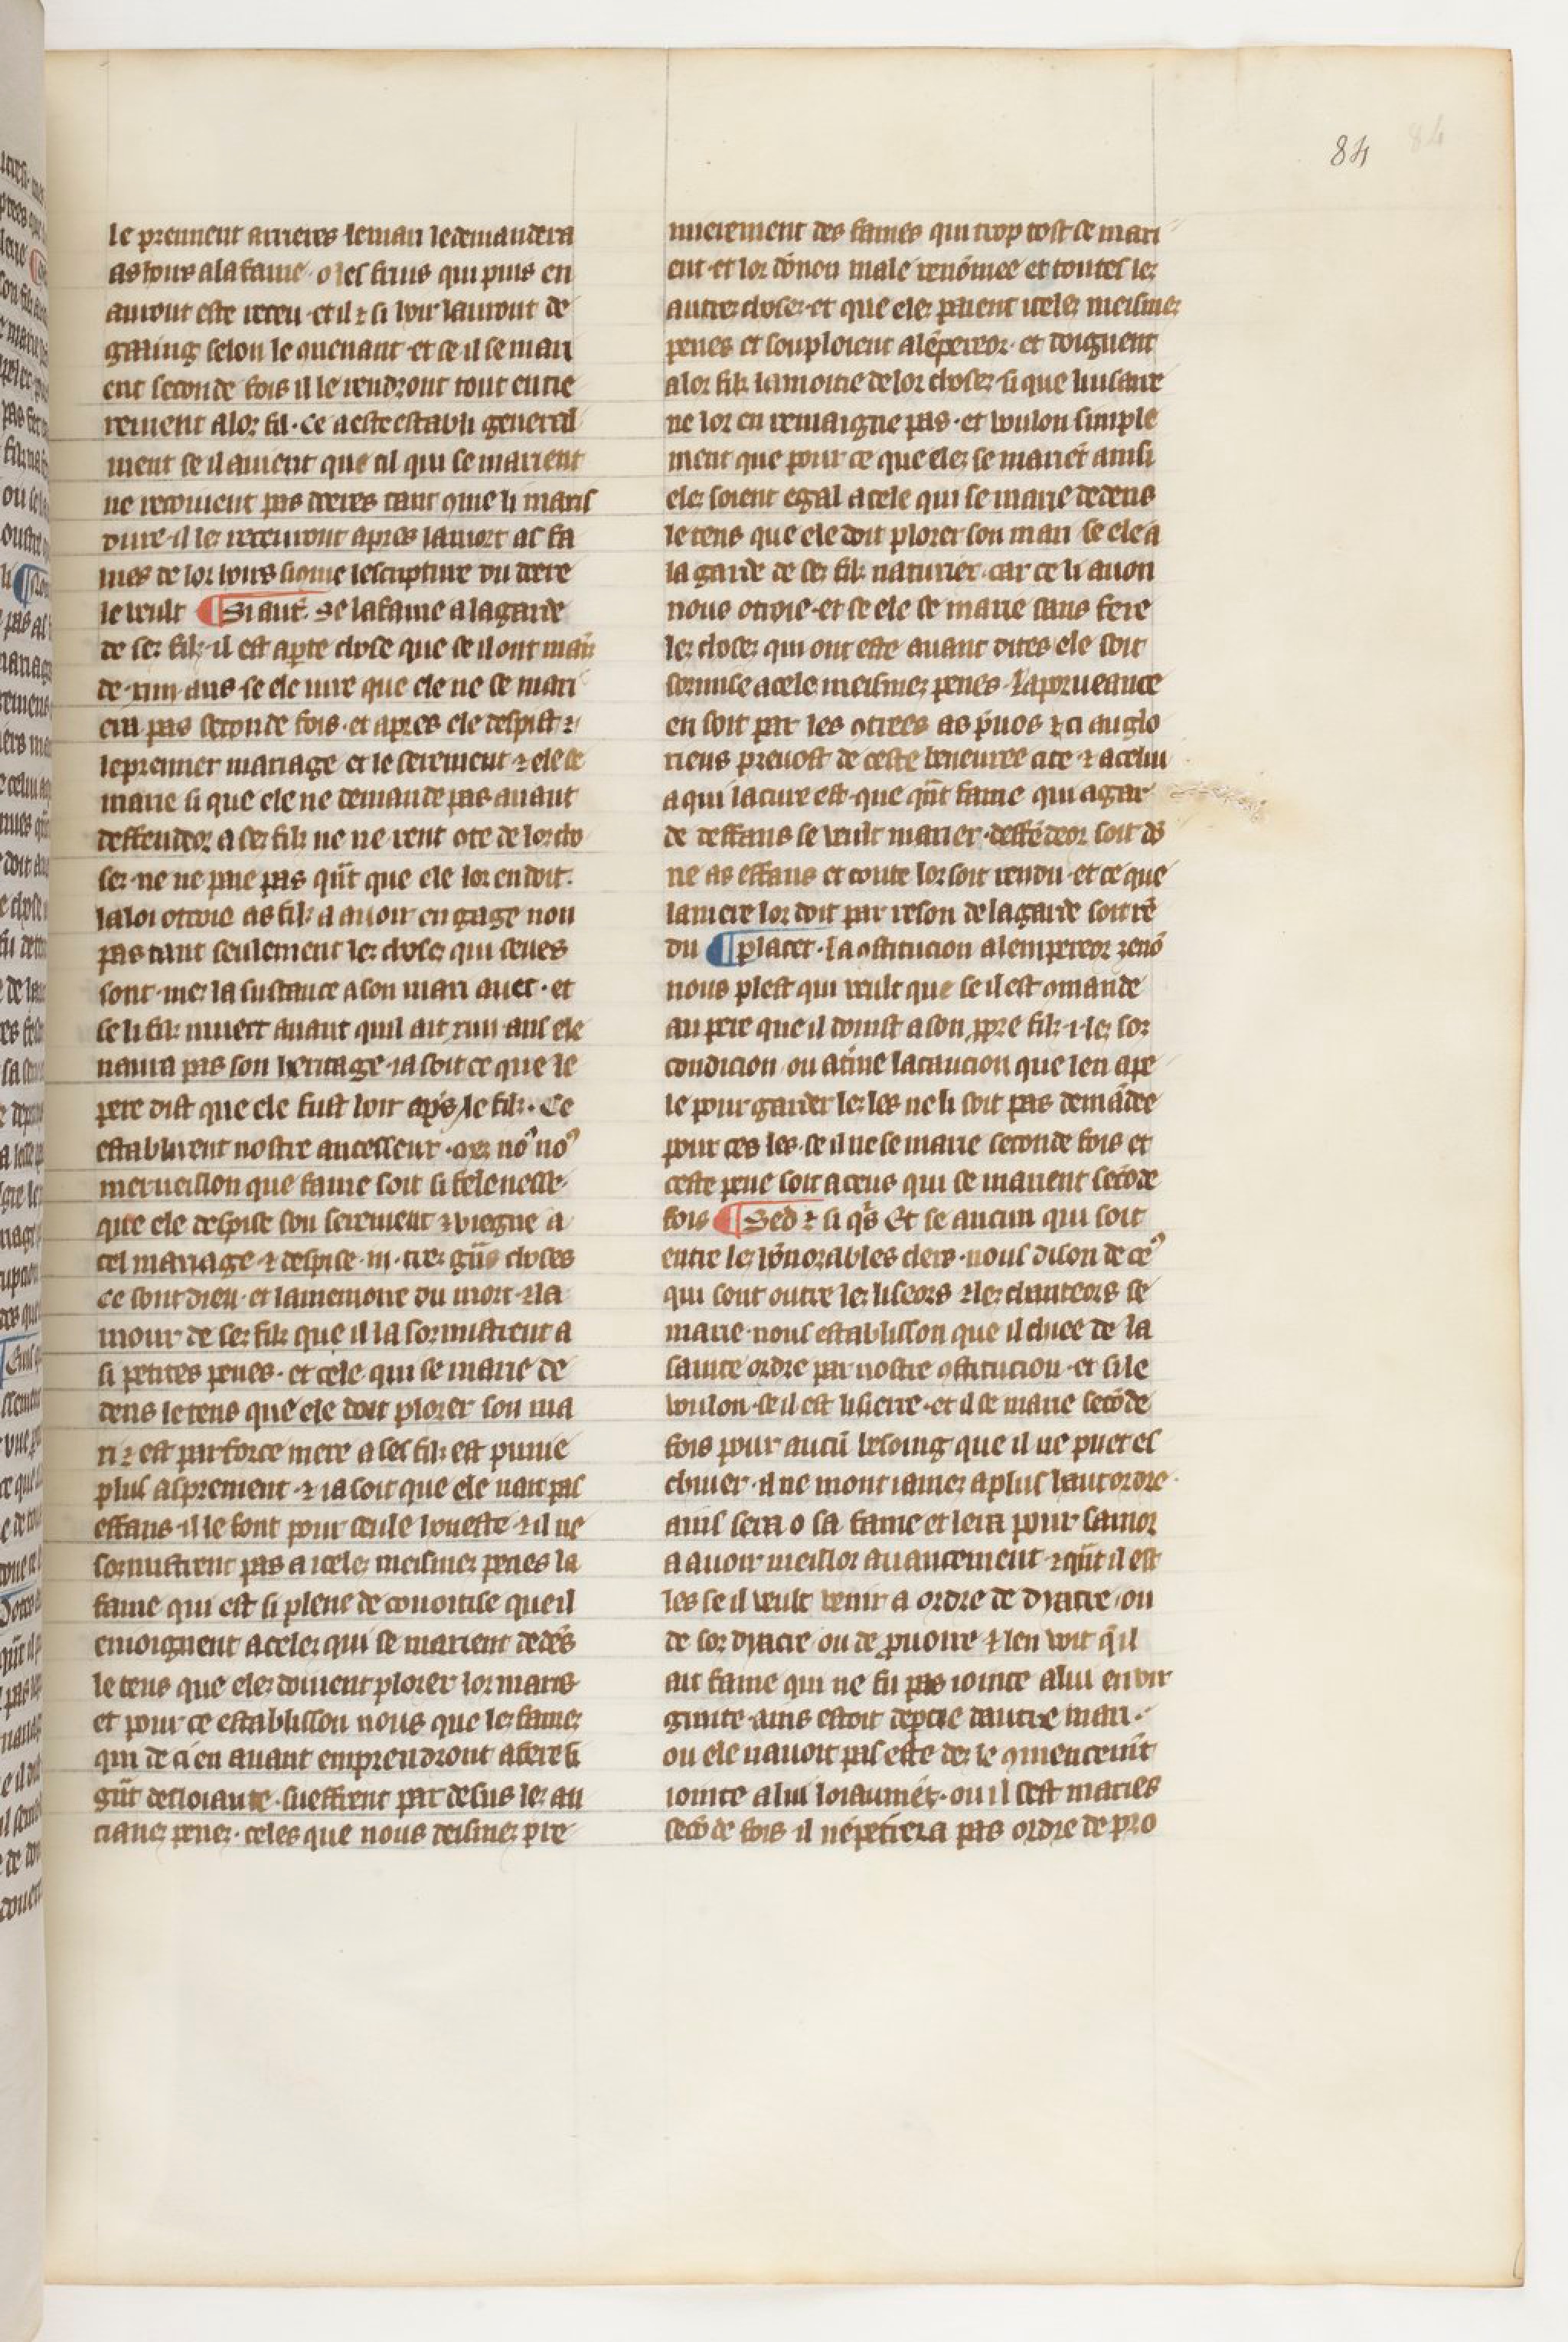 84
le prennent arrieres le mari le demandera
as hoirs a la fame · o les fruis qui puis en
auront este receu · et il ⁊ si hoir lauront de
gaaing selon le quenant · et se il se mari
ent seconde fois il le rendront tout entie
rement a lor fil · Ce a este establi general
ment se il auient que cil qui se marient
ne recoiuent pas derres tant que li maris
viure · il les receuront apres la mort as fa
mes de lor hoirs si come lescripture du dere
le veult ¶ Si aut̃ · Se la fame a la garde
de ses filz · il est aperte chose que se il ont main
de · xiiii · ans · se ele iure que ele ne se mari
era pas seconde fois · et apres ele despist ⁊
le premier mariage et le serement ⁊ ele se
marie si que ele ne demande pas auant
deffendeor a ses filz ne ne rent ote de lor cho
ses · ne ne paie pas qñt que ele lor en doit ·
la loi ottroie as filz a auoir en gage non
pas tant seulement les choses qui seues
sont · mes la sustance a son mari auec · et
se li filz muert auant quil ait xiiii · ans ele
naura pas son heritage · ia soit ce que le
pere dist que ele fust hoir ap̃s le filz · Ce
establirent nostre ancesseur · Mes noꝰ noꝰ
merueillon que fame soit si felenesse ·
que ele despise son serement ⁊ viegne a
cel mariage ⁊ despise · iii · tres gñs choses
ce sont dieu · et la memoire du mort · ⁊ la
mour de ses filz que il la sormistrent a
si petites penes · et cele qui se marie de
dens le tens que ele doit plorer son ma
ri ⁊ est par force mere a ses filz est punie
plus asprement · ⁊ ia soit que ele nait pas
effans · il le font pour seule honeste ⁊ il ne
sormistrent pas a iceles meismes penes la
fame qui est si plene de couoitise que il
enioignent a celes qui se marient dedẽs
le tens que eles doiuent plorer lor maris
et pour ce establisson nous que les fames
qui de ci en auant emprendront a fere si
gñt desloiaute · sueffrent par desus les an
cianes penes · celes que nous deismes pre
mierement des fames qui trop tost se mari
ent · et lor dõnon male renõmee et toutes les
autres choses · et que eles paient iceles meismes
penes et souploient a lẽpereor · et doignent
a lor filz la moitie de lor choses · si que lusaire
ne lor en remaigne pas · et voulon simple
ment que pour ce que eles se mariẽt ainsi
eles soient egal a cele qui se marie dedens
le tens que ele doit plorer son mari · se ele a
la garde de ses filz naturiex · car ce li auon
nous otroie · et se ele se marie sans fere
les choses qui ont este auant dites ele soit
sormise a cele meismes penes · La porueance
en soit par les otrees as p̃uos ⁊ ci au glo
rieus preuost de ceste beneuree cite ⁊ a celui
a qui la cure est · que qñt fame qui a gar
de deffans se veult marier · deffẽdeor soit dõ
ne as effans et conte lor soit rendu · et ce que
la mere lor doit par reson de la garde soit rẽ
du ¶ placet · La ostitucion a lempereor zenõ
nous plest qui veult que se il est omande
au pere que il doinst a son p̃pre filz · i · les sor
condicion ou a tẽme la caucion que len ape
le pour garder les les ne li soit pas demãdee
pour ces les · se il ne se marie seconde fois et
ceste pene soit a ceus qui se marient secõde
fois ¶ Sed ⁊ si qs̃ Et se aucun qui soit
entre les hõnorables clers · nous dison de ceꝰ
qui sont outre les liseors ⁊ les chanteors se
marie · nous establisson que il chiee de la
sainte ordre par nostre ꝯstitucion · et si le
voulon · se il est lisierre · et il se marie secõde
fois pour aucũ besoing que il ne puet es
chiuer · il ne mont iames a plus haut ordre ·
ains sera o sa fame et lera pour samor
a auoir meillor auancement · ⁊ qñt il est
les se il veult venir a ordre de dyacre · ou
de sordyacre ou de prouoire ⁊ len voit q̃ il
ait fame qui ne fu pas iointe a lui en vir
ginite · ains estoit deptie dautre mari ·
ou ele nauoit pas este des le ꝯmencemt̃
iointe a lui loiaumẽt · ou il sest maries
secõde fois · il nẽpetrera pas ordre de pro